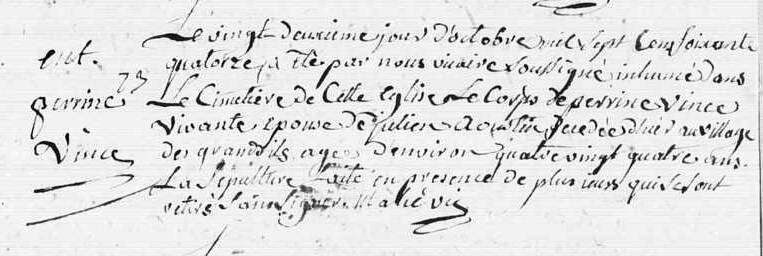 ent.
73
perrine
Vince
Le vingt deuxieme jour d'octobre mil sept cens soixante
quatorze, a été par nous vicaire soussigné inhumé dans
Le Cimetière de Cette Eglise Le Corps de perrine vince
vivante Epouse de Julien decedée d'hier au village
des agee d'environ quatre vingt quatre ans.
La sepulture faite en presence de plusieurs qui se sont
retirés sans signer. vic